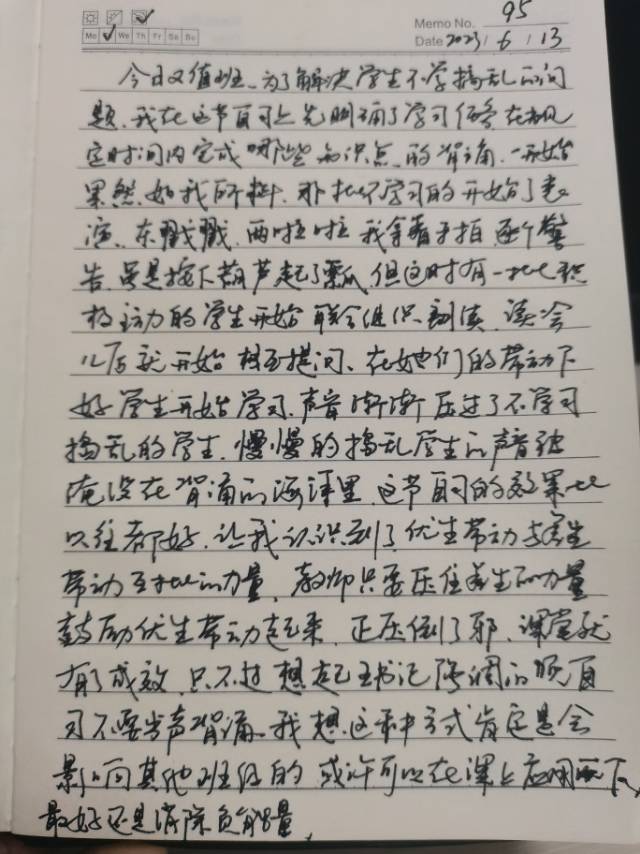 Memo No. 95
Mo Tu We Th Fr Sa Su
Date 2023 / 6 / 13
今日又值班、为了解决学生不学捣乱的问
题、我在这节自习上先明确了学习任务 在规
定时间内完成哪些知识点的背诵、一开始
果然、如我所料、那批不学习的开始了表
演、东戳戳、西啦啦 我拿着手拍、逐个警
告、虽是按下葫芦起了瓢、但这时有一批比较积
极主动的学生开始联合组织翻读、读会
儿后就开始相互提问、在她们的带动下
好学生开始学习、声音渐渐压过了不学习
捣乱的学生、慢慢的捣乱学生的声音被
淹没在背诵的海洋里、这节自习的效果比
以往都好、让我认识到了优生带动与差生
带动互批的力量、教师只要压住差生的力量
鼓励优生带动起来、正压倒了邪、课堂就
有了成效、只不过想起书记强调的晚自
习不要出声背诵、我想这种方式肯定是会
影响其他班级的 或许可以在课上应用一下、
最好还是消除负能量、